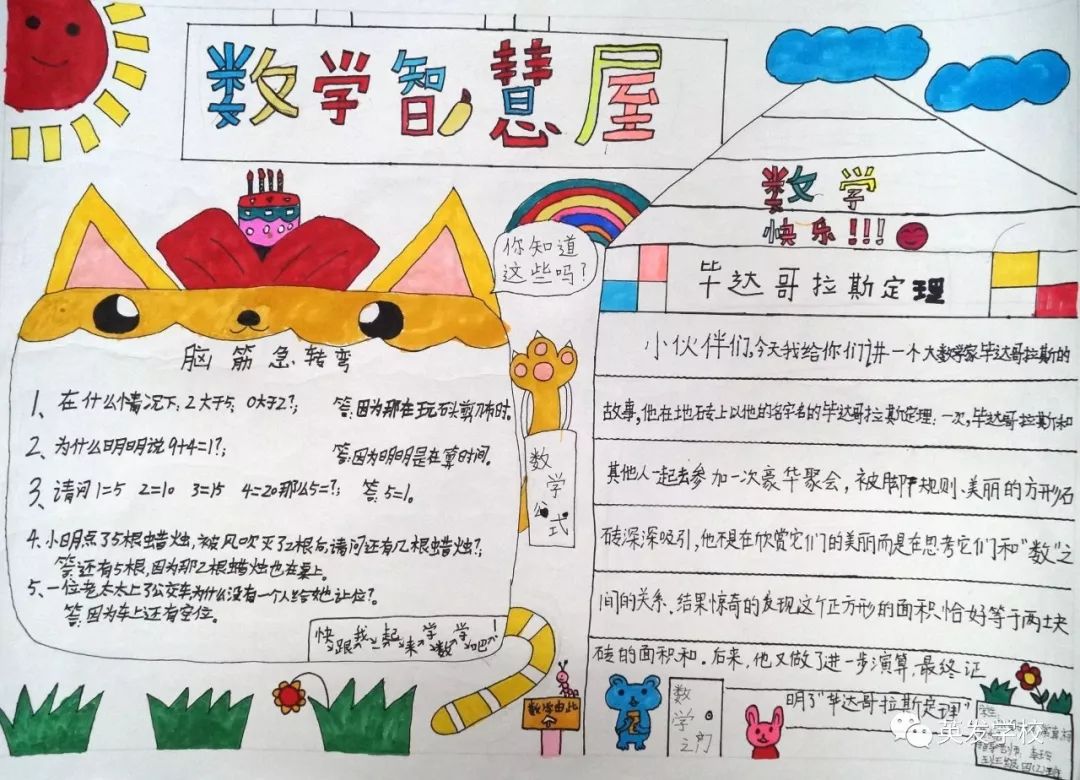 数学智慧屋
数学
快乐!!!
你知道
这些吗?
毕达哥拉斯定理
脑筋急转弯
1、在什么情况下:2大于5,0大于2?; 答:因为那在玩石头剪刀布时。
2、为什么明明说9+4=1?; 答:因为明明是在算时间。
3、请问1=5 2=10 3=15 4=20那么5=?; 答:5=1。
4、小明点了5根蜡烛,被风吹灭了2根后,请问还有几根蜡烛?;
答:还有5根,因为那2根蜡烛也在桌上。
5、一位老太太上了公交车为什么没有一个人给她让位?。
答:因为车上还有空位。
快跟我一起来学数学吧!
数学
公式
小伙伴们,今天我给你们讲一个大数学家毕达哥拉斯的
故事,他在地砖上以他的名字名的毕达哥拉斯定理:一次,毕达哥拉斯和
其他人一起去参加一次豪华聚会,被脚下规则、美丽的方形石
砖深深吸引,他不是在欣赏它们的美丽而是在思考它们和"数"之
间的关系、结果惊奇的发现这个正方形的面积恰好等于两土块
砖的面积和。后来,他又做了进一步演算,最终证
明了"毕达哥拉斯定理"
数学由此
数学
之门
四(2)班
英发学校